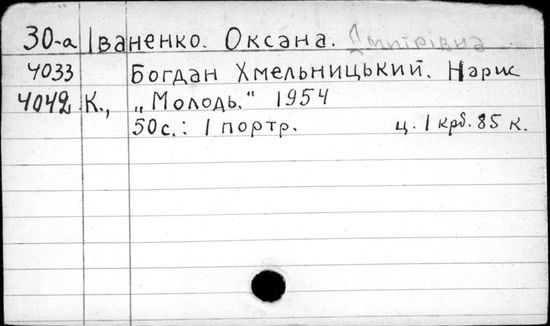 30-а Іваненко. Оксана. Дмитрівна
4033 Богдан Хмельницький. Нарис
4042 К., „Молодь." 1954
50с.: 1 портр. ц. 1 крб. 85 к.